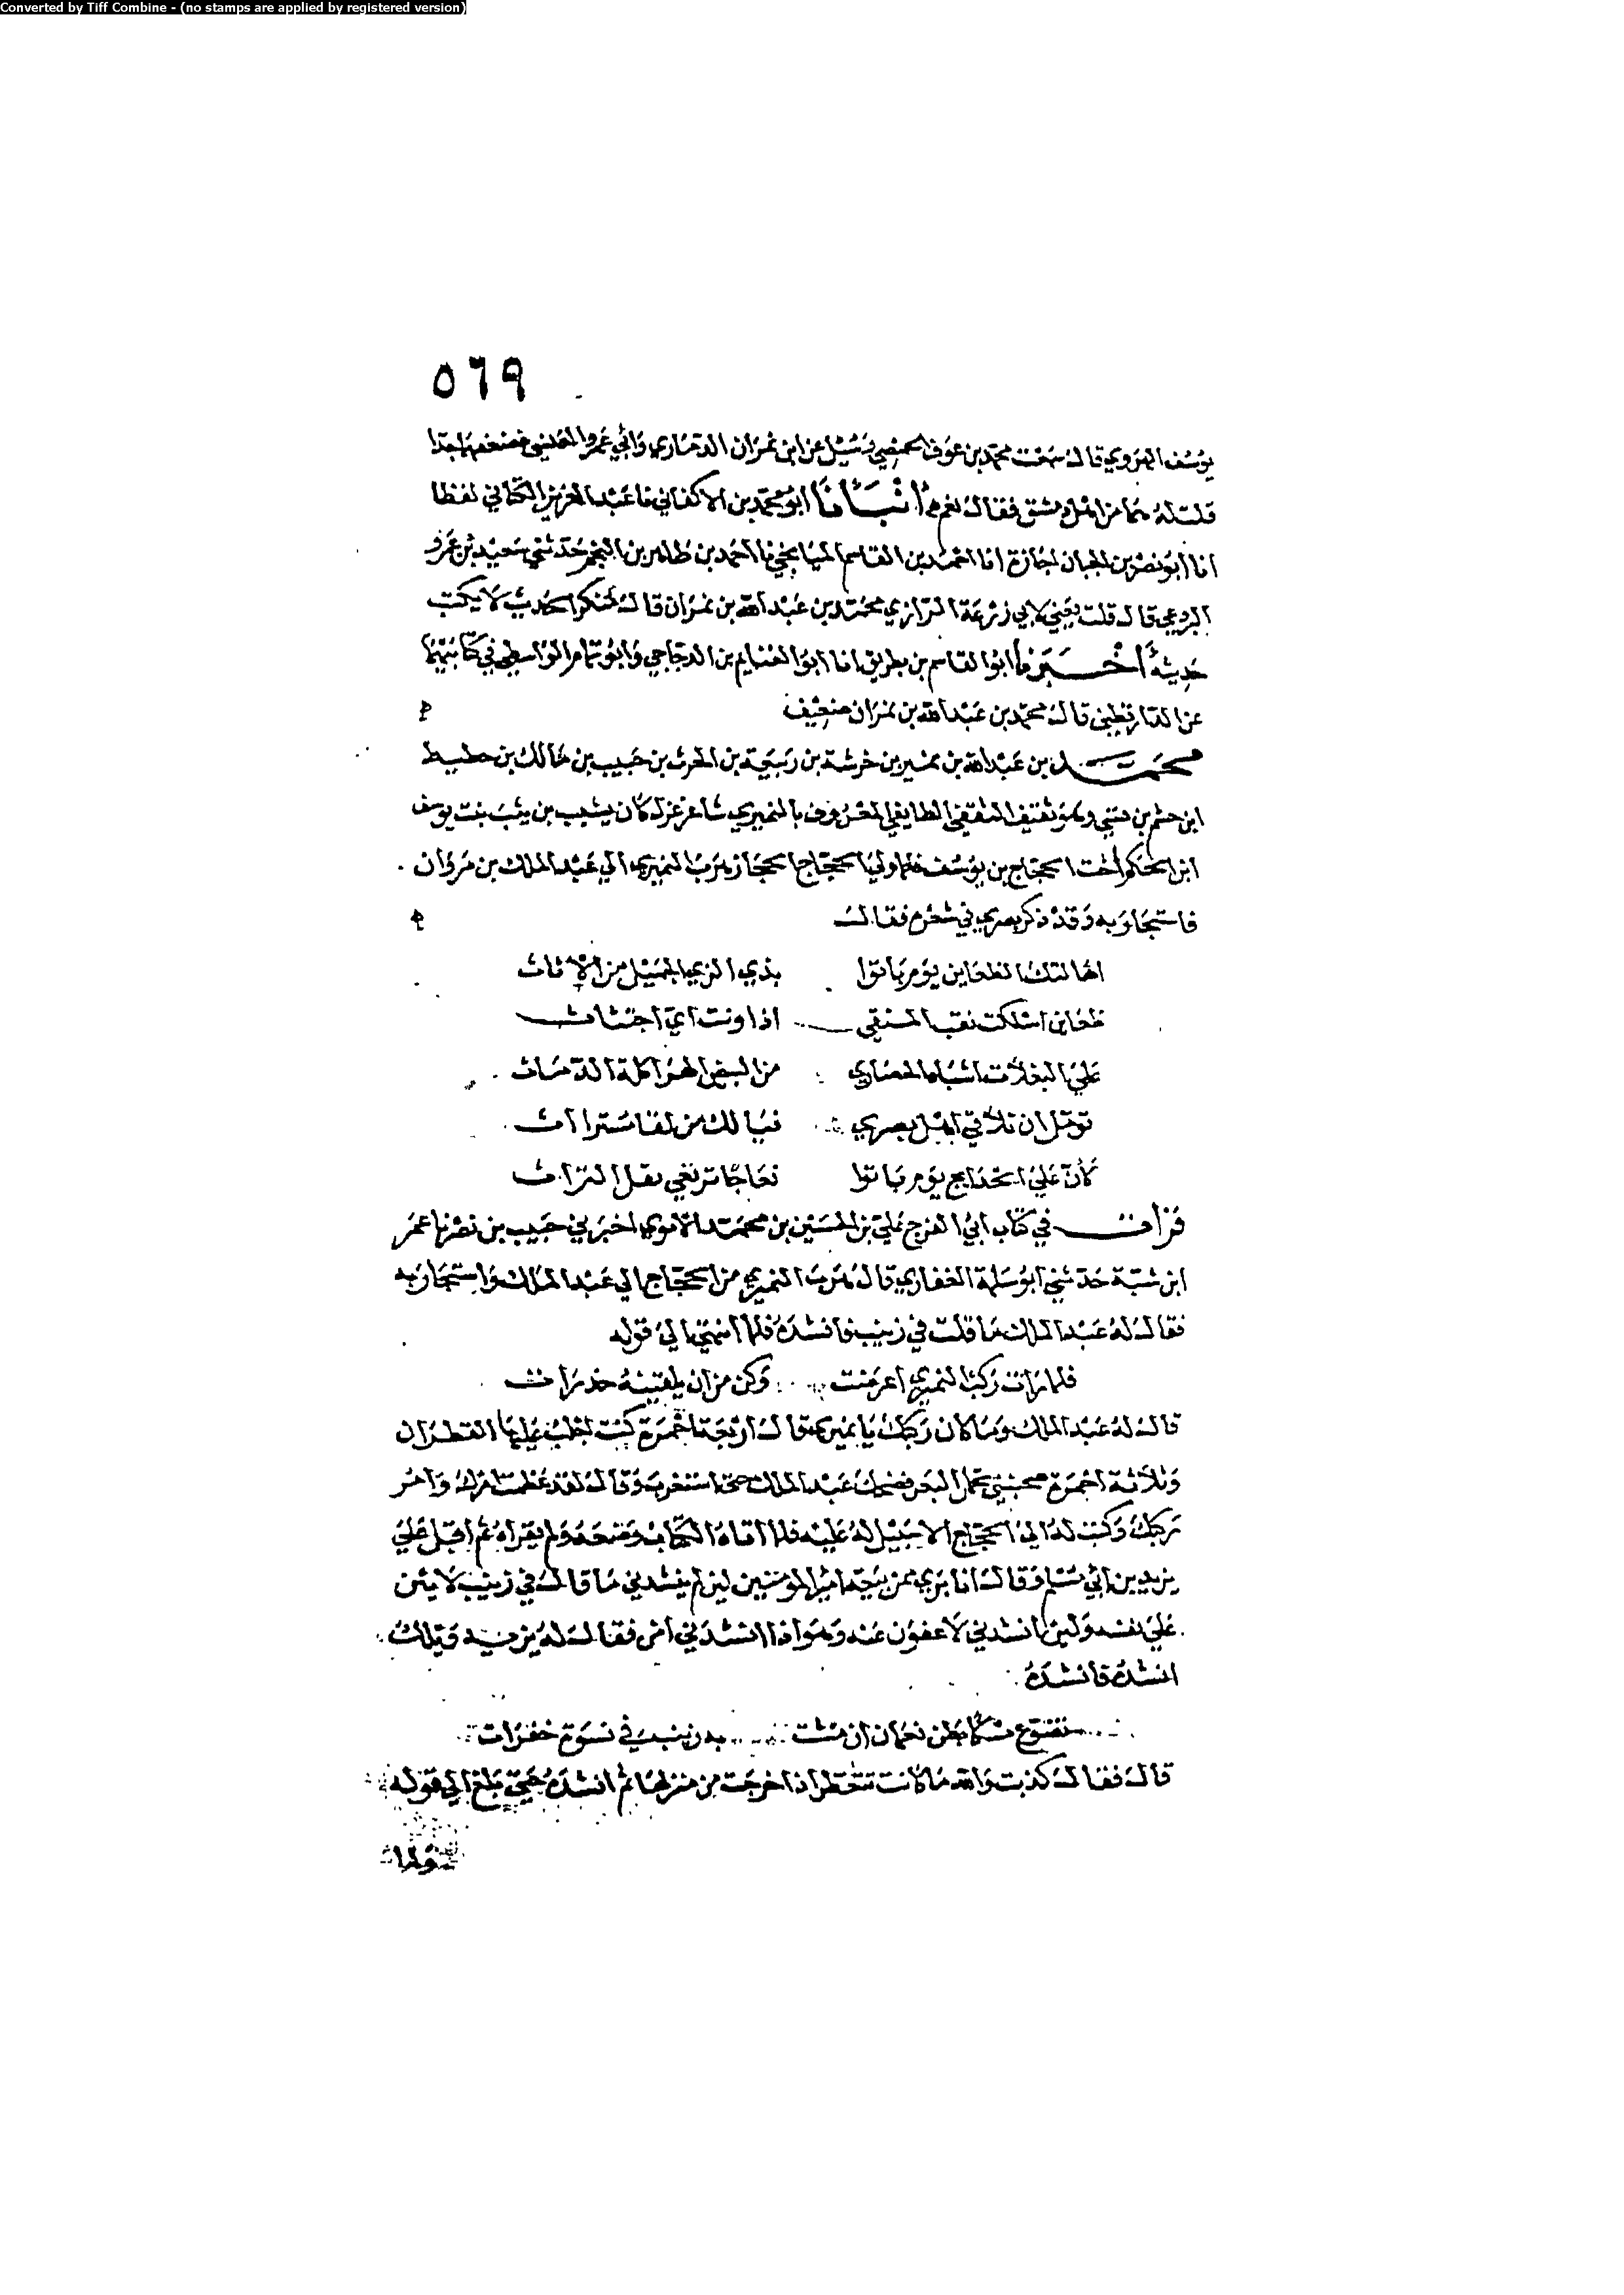 Converted by Tiff Combine - (no stamps are applied by registered version)
٥٦٩
يوسف الهروي قال سمعت محمد بن عوف الحمصي وسئل عن ابن نمران الذماري وابي عمرو العنسي فضعفهما جدا
قلت له هما من اهل دمشق فقال نعم انبأنا ابو محمد بن الاكفاني نا عبد العزيز الكتاني لفظا
انا ابو نصر بن الجبان اجازة انا احمد بن القاسم الميانجي نا احمد بن طاهر بن النجم حدثني سعيد بن عمرو
البردعي قال قلت يعني لابي زرعة الرازي محمد بن عبد الله بن نمران قال منكر الحديث لا يكتب
حديثه اخبرنا ابو القاسم بن بطريق انا ابو الغنايم بن الدجاجي وابو تمام الواسطي في كتابيهما
عن الدارقطني قال محمد بن عبد الله بن نمران ضعيف
محمد بن عبد الله بن نمير بن خرشة بن ربيعة بن الحرث بن حبيب بن مالك بن حطيط
ابن جشم بن قسي وهو ثقيف الثقفي الطايفي المعروف بالنميري شاعر غزل كان يشبب بزينب بنت يوسف
ابن الحكم اخت الحجاج بن يوسف فلما ولي الحجاج الحجاز هرب النميري الي عبد الملك بن مروان
فاستجار به وقد ذكر بصري في شعره فقال
اهالتك الظعاين يوم بانوا بذي الزي الجميل من الاثاث
ظعاين اسلكت نقب المنقي اذا ونت اي احتثاث
علي البغلات اشباه الحصاري من البيض الهراكلة الدماث
تومل ان تلاقي اهل بصري فيا لك من لقا مستراث
كأن علي الحدايج يوم بانوا نعاجا ترتعي بقل البراث
قرأت في كتاب ابي الفرج علي بن الحسين بن محمد الاموي اخبرني حبيب بن نصر نا عمر
ابن شبة حدثني ابو سلمة الغفاري قال هرب النميري من الحجاج الي عبد الملك واستجار به
فقال له عبد الملك ما قلت في زينب فانشده فلما انتهي الي قوله
فلما رات ركب النميري اعرضت وكن من ان يلقينه حذرات
قال له عبد الملك وما كان ركبك يا نميري قال اربعة احمرة كنت اجلب عليها القطران
وثلاثة احمرة صحبتي تحمل البعر فضحك عبد الملك حتي استغرب وقال لقد عظمت امرك وامر
ركبك وكتب له الي الحجاج الا سبيل له عليه فلما اتاه الكتاب وضعه ولم يقراه ثم اقبل علي
يزيد بن ابي مسلم وقال انا بري من بيعة امير المومنين لين لم ينشدني ما قال في زينب لاتين
علي نفسه ولين انشدني لاعفون عنه وهو اذا انشدني امن فقال له يزيد ويلك
انشده فانشده
تضوع مسكا بطن نعمان ان مشت به زينب في نسوة خفرات
قال فقال كذبت والله ما كانت تتعطر اذا خرجت من منزلها ثم انشده حتي بلغ الي قوله
ولما